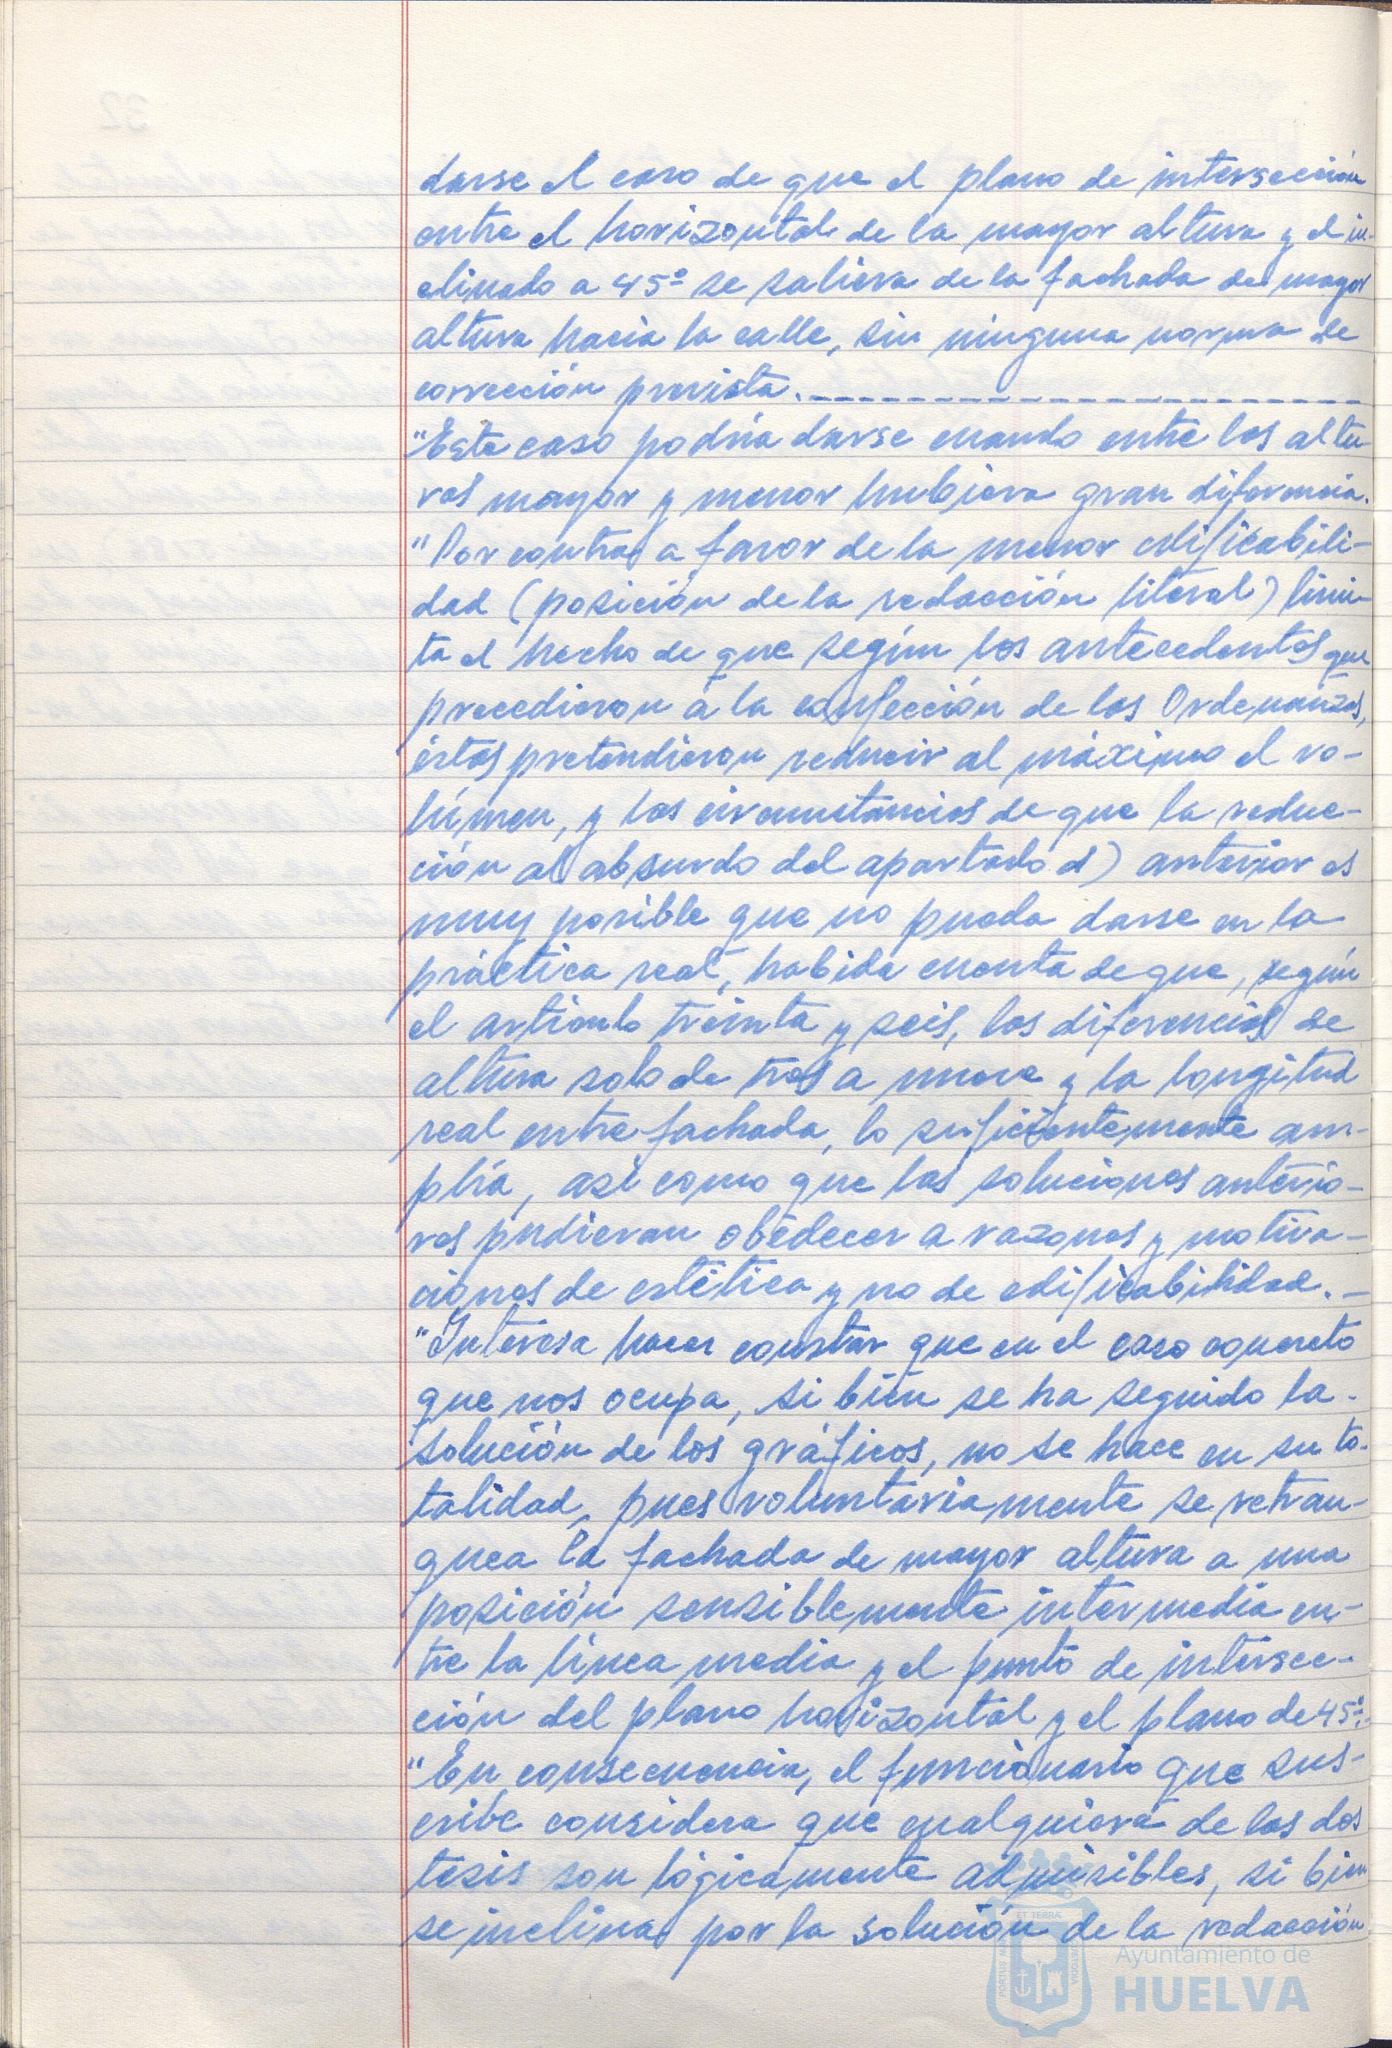 darse el caso de que el plano de intersección
entre el horizontal de la mayor altura y el in-
clinado a 45º se saliera de la fachada de mayor
altura hacia la calle, sin ninguna norma de
corrección prevista.---------------------
"Este caso podría darse cuando entre las altu-
ras mayor y menor hubiera gran diferencia.
"Por contra, a favor de la menor edificabili-
dad (posición de la redacción literal) limi-
ta el hecho de que según los antecedentes que
precedieron a la confección de las Ordenanzas,
éstas pretendieron reducir al máximo el vo-
lúmen, y las circunstancias de que la reduc-
ción al absurdo del apartado d) anterior es
muy posible que no pueda darse en la
práctica real, habida cuenta de que, según
el artículo treinta y seis, las diferencias de
altura solo de tres a nueve y la longitud
real entre fachada, lo suficientemente am-
plia, así como que las soluciones anterio-
res pudieran obedecer a razones y motiva-
ciones de estética y no de edificabilidad.-
"Interesa hacer constar que en el caso concreto
que nos ocupa, si bién se ha seguido la
solución de los gráficos, no se hace en su to-
talidad, pues voluntariamente se retran-
quea la fachada de mayor altura a una
posición sensiblemente intermedia en-
tre la línea media y el punto de intersec-
ción del plano horizontal y el plano de 45º.-
"En consecuencia, el funcionario que sus-
cribe considera que cualquiera de las dos
tesis son lógicamente admisibles, si bien
se inclina por la solución de la redacción
Ayuntamiento de
HUELVA